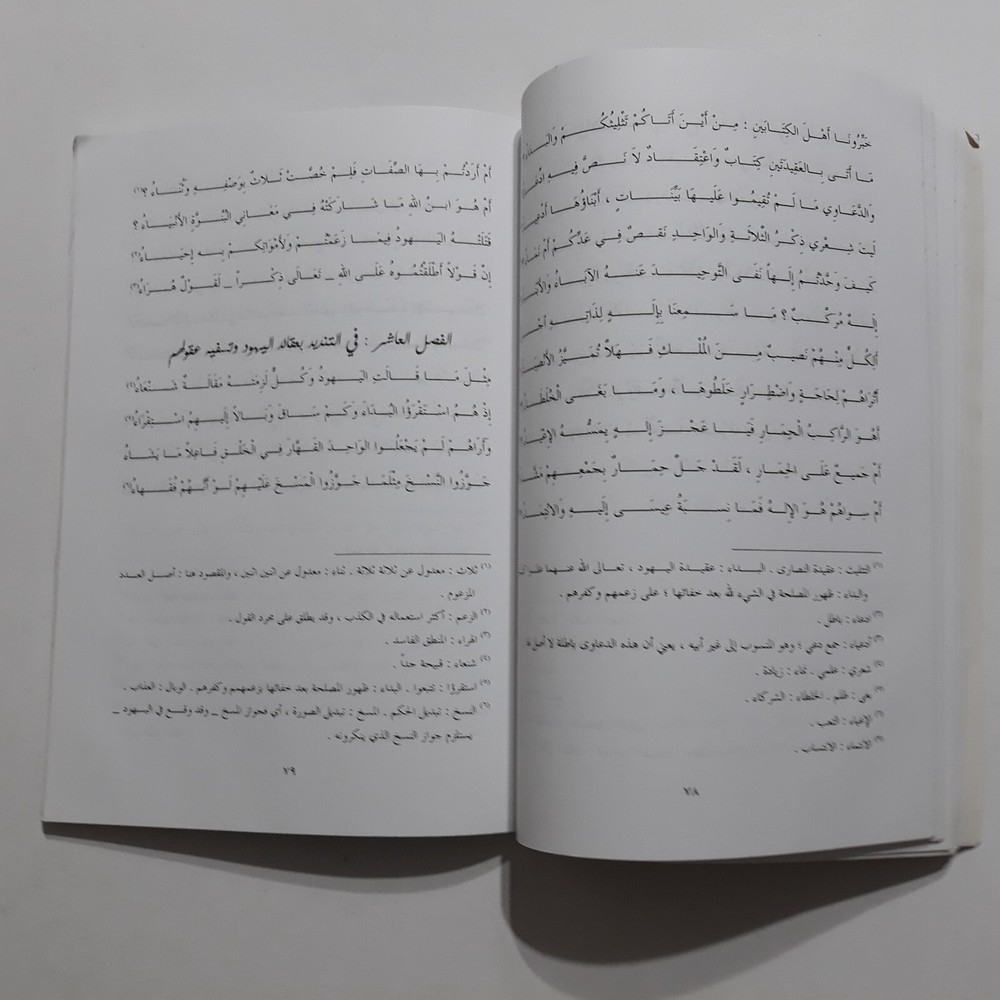 خَبِّرُونَا أَهْلَ الكِتَابَيْنِ : مِنْ أَيْنَ أَتَاكُمْ تَثْلِيثُكُمْ وَالبَدَاءُ
مَا أَتَى بِالعَقِيدَتَيْنِ كِتَابٌ وَاعْتِقَادٌ لاَ نَصَّ فِيهِ
وَالدَّعَاوِي مَا لَمْ تُقِيمُوا عَلَيْهَا بَيِّنَاتٍ ، أَبْنَاؤُهَا أَدْعِيَاءُ
لَيْتَ شِعْرِي ذِكْرُ الثَّلاَثَةِ وَالوَاحِدِ نَقْصٌ فِي عَدِّكُمْ أَمْ نَمَاءُ
كَيْفَ وَحَّدْتُمُ إِلَهاً نَفَى التَّوْحِيدَ عَنْهُ الآبَاءُ وَالأَبْنَاءُ
إِلَهٌ مُرَكَّبٌ ؟ مَا سَمِعْنَا بِإِلَهٍ لِذَاتِهِ
أَلِكُلٍّ مِنْهُمْ نَصِيبٌ مِنَ المُلْكِ فَهَلاَّ تُمَيَّزُ
أَتُرَاهُمْ لِحَاجَةٍ وَاضْطِرَارٍ خَلَطُوهَا ، وَمَا بَغَى الخُلَطَاءُ
أَهُوَ الرَّاكِبُ الحِمَارَ فَيَا عَجْزَ إِلَهٍ يَمَسُّهُ الإِعْيَاءُ
أَمْ جَمِيعٌ عَلَى الحِمَارِ ، لَقَدْ جَلَّ حِمَارٌ بِجَمْعِهِمْ
أَمْ سِوَاهُمْ هُوَ الإِلَهُ فَمَا نِسْبَةُ عِيسَى إِلَيْهِ وَالانْتِمَاءُ
(١) التثليث : عقيدة النصارى . البداء : عقيدة اليهود ، تعالى الله عنهما
والبداء : ظهور المصلحة في الشيء لله بعد خفائها ؛ على زعمهم وكفرهم .
(٢) ادعاء : باطل .
(٣) أدعياء : جمع دعي ؛ وهو المنسوب إلى غير أبيه ، يعني أن هذه الدعاوى باطلة لا أصل لها
(٤) شعري : علمي . نماء : زيادة .
(٥) بغى : ظلم . الخلطاء : الشركاء .
(٦) الإعياء : التعب .
(٧) الانتماء : الانتساب .
٧٨
أَمْ أَرَدْتُمْ بِهَا الصِّفَاتِ فَلِمْ خُصَّتْ ثَلاَثٌ بِوَصْفِهِ وَثُنَاءُ (١)
أَمْ هُوَ ابنُ اللهِ مَا شَارَكَتْهُ فِي مَعَانِي البُنُوَّةِ الأَنْبِيَاءُ ؟
قَتَلَتْهُ اليَهُودُ فِيمَا زَعَمْتُمْ وَلأَمْوَاتِكُمْ بِهِ إِحْيَاءُ (٢)
إِنَّ قَوْلاً أَطْلَقْتُمُوهُ عَلَى اللهِ _ تَعَالَى ذِكْراً _ لَقَوْلٌ هُرَاءُ (٣)
الفصل العاشر : في التنديد بعقائد اليهود وتسفيه عقولهم
مِثْلَ مَا قَالَتِ اليَهُودُ وَكُلٌّ لَزِمَتْهُ مَقَالَةٌ شَنْعَاءُ (٤)
إِذْ هُمُ اسْتَقْرَؤُا البُدَاءَ وَكَمْ سَاقَ وَبَالاً إِلَيْهِمُ اسْتِقْرَاءُ (٥)
وَأَرَاهُمْ لَمْ يَجْعَلُوا الوَاحِدَ القَهَّارَ فِي الخَلْقِ فَاعِلاً مَا يَشَاءُ
جَوَّزُوا النَّسْخَ مِثْلَمَا جَوَّزُوا المَسْخَ عَلَيْهِمْ لَوْ أَنَّهُمْ فُقَهَاءُ (٦)
(١) ثلاث : معدول عن ثلاثة ثلاثة . ثناء : معدول عن اثنين اثنين ، والمقصود هنا : أصل العدد
المزعوم .
(٢) الزعم : أكثر استعماله في الكذب ، وقد يطلق على مجرد القول .
(٣) الهراء : المنطق الفاسد .
(٤) شنعاء : قبيحة جداً .
(٥) استقرؤا : تتبعوا . البداء : ظهور المصلحة بعد خفائها بزعمهم وكفرهم . الوبال : العذاب .
(٦) النسخ : تبديل الحكم . المسخ : تبديل الصورة ، أي فجواز المسخ _ وقد وقع في اليهود _
يستلزم جواز النسخ الذي ينكرونه .
٧٩